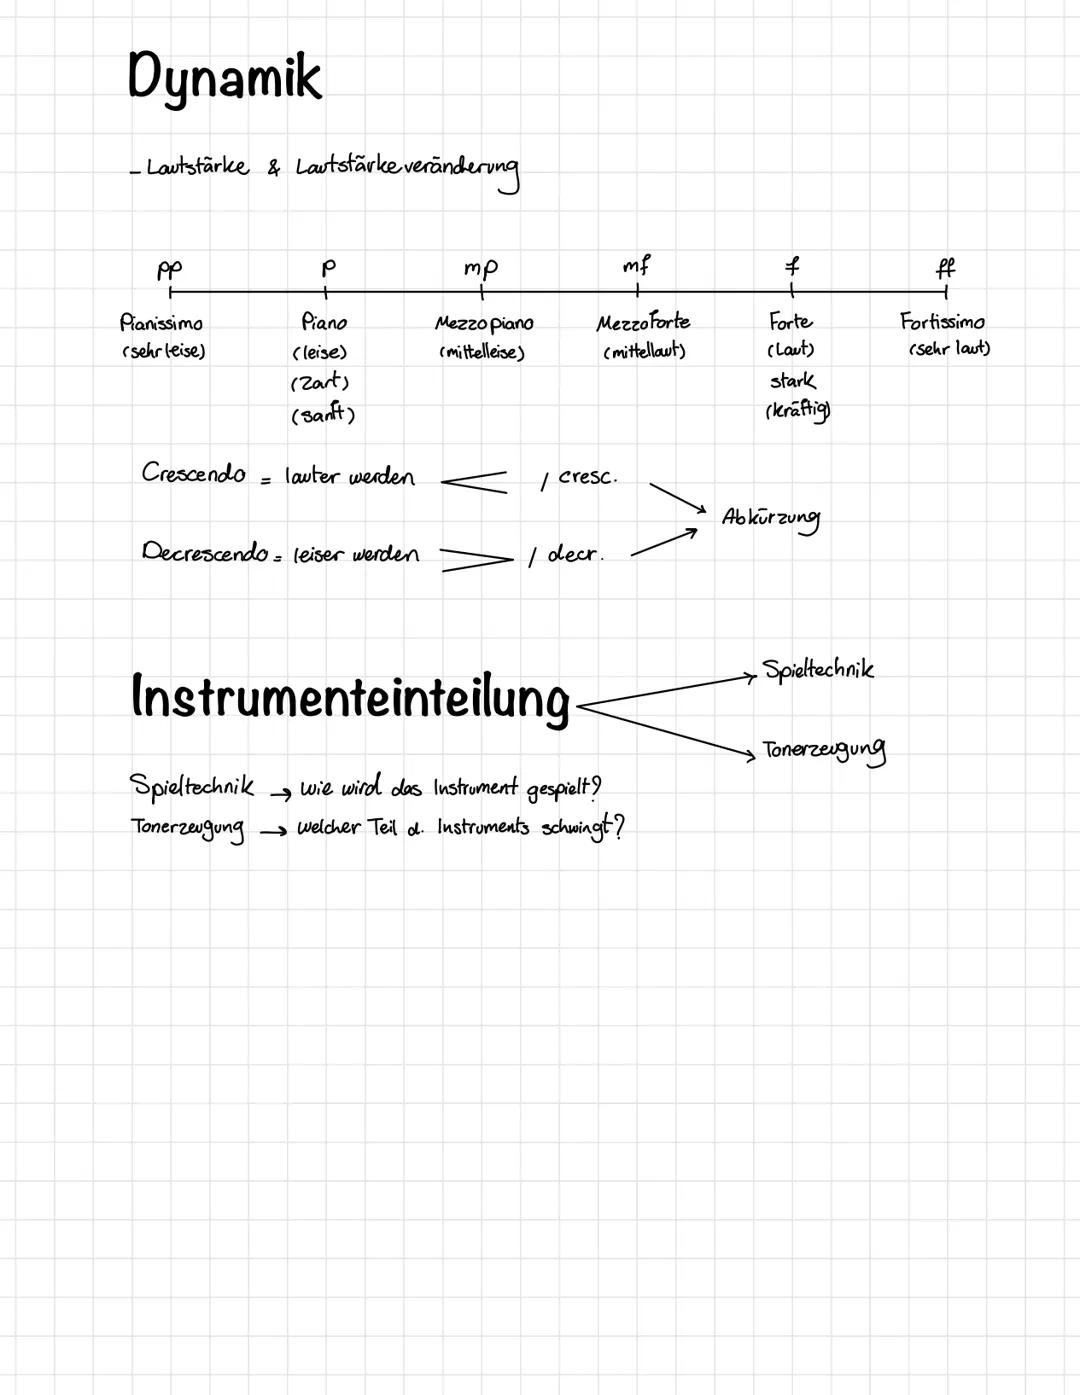 Dynamik
- Lautstärke & Lautstärkeveränderung
pp p mp mf f ff
Pianissimo Piano Mezzopiano Mezzoforte Forte Fortissimo
(sehr leise) (leise) (mittelleise) (mittellaut) (Laut) (sehr laut)
(zart) stark
(sanft) (kräftig)
Crescendo = lauter werden < / cresc.
Abkürzung
Decrescendo = leiser werden > / decr.
Spieltechnik
Instrumenteinteilung
Tonerzeugung
Spieltechnik → wie wird das Instrument gespielt?
Tonerzeugung → welcher Teil d. Instruments schwingt?